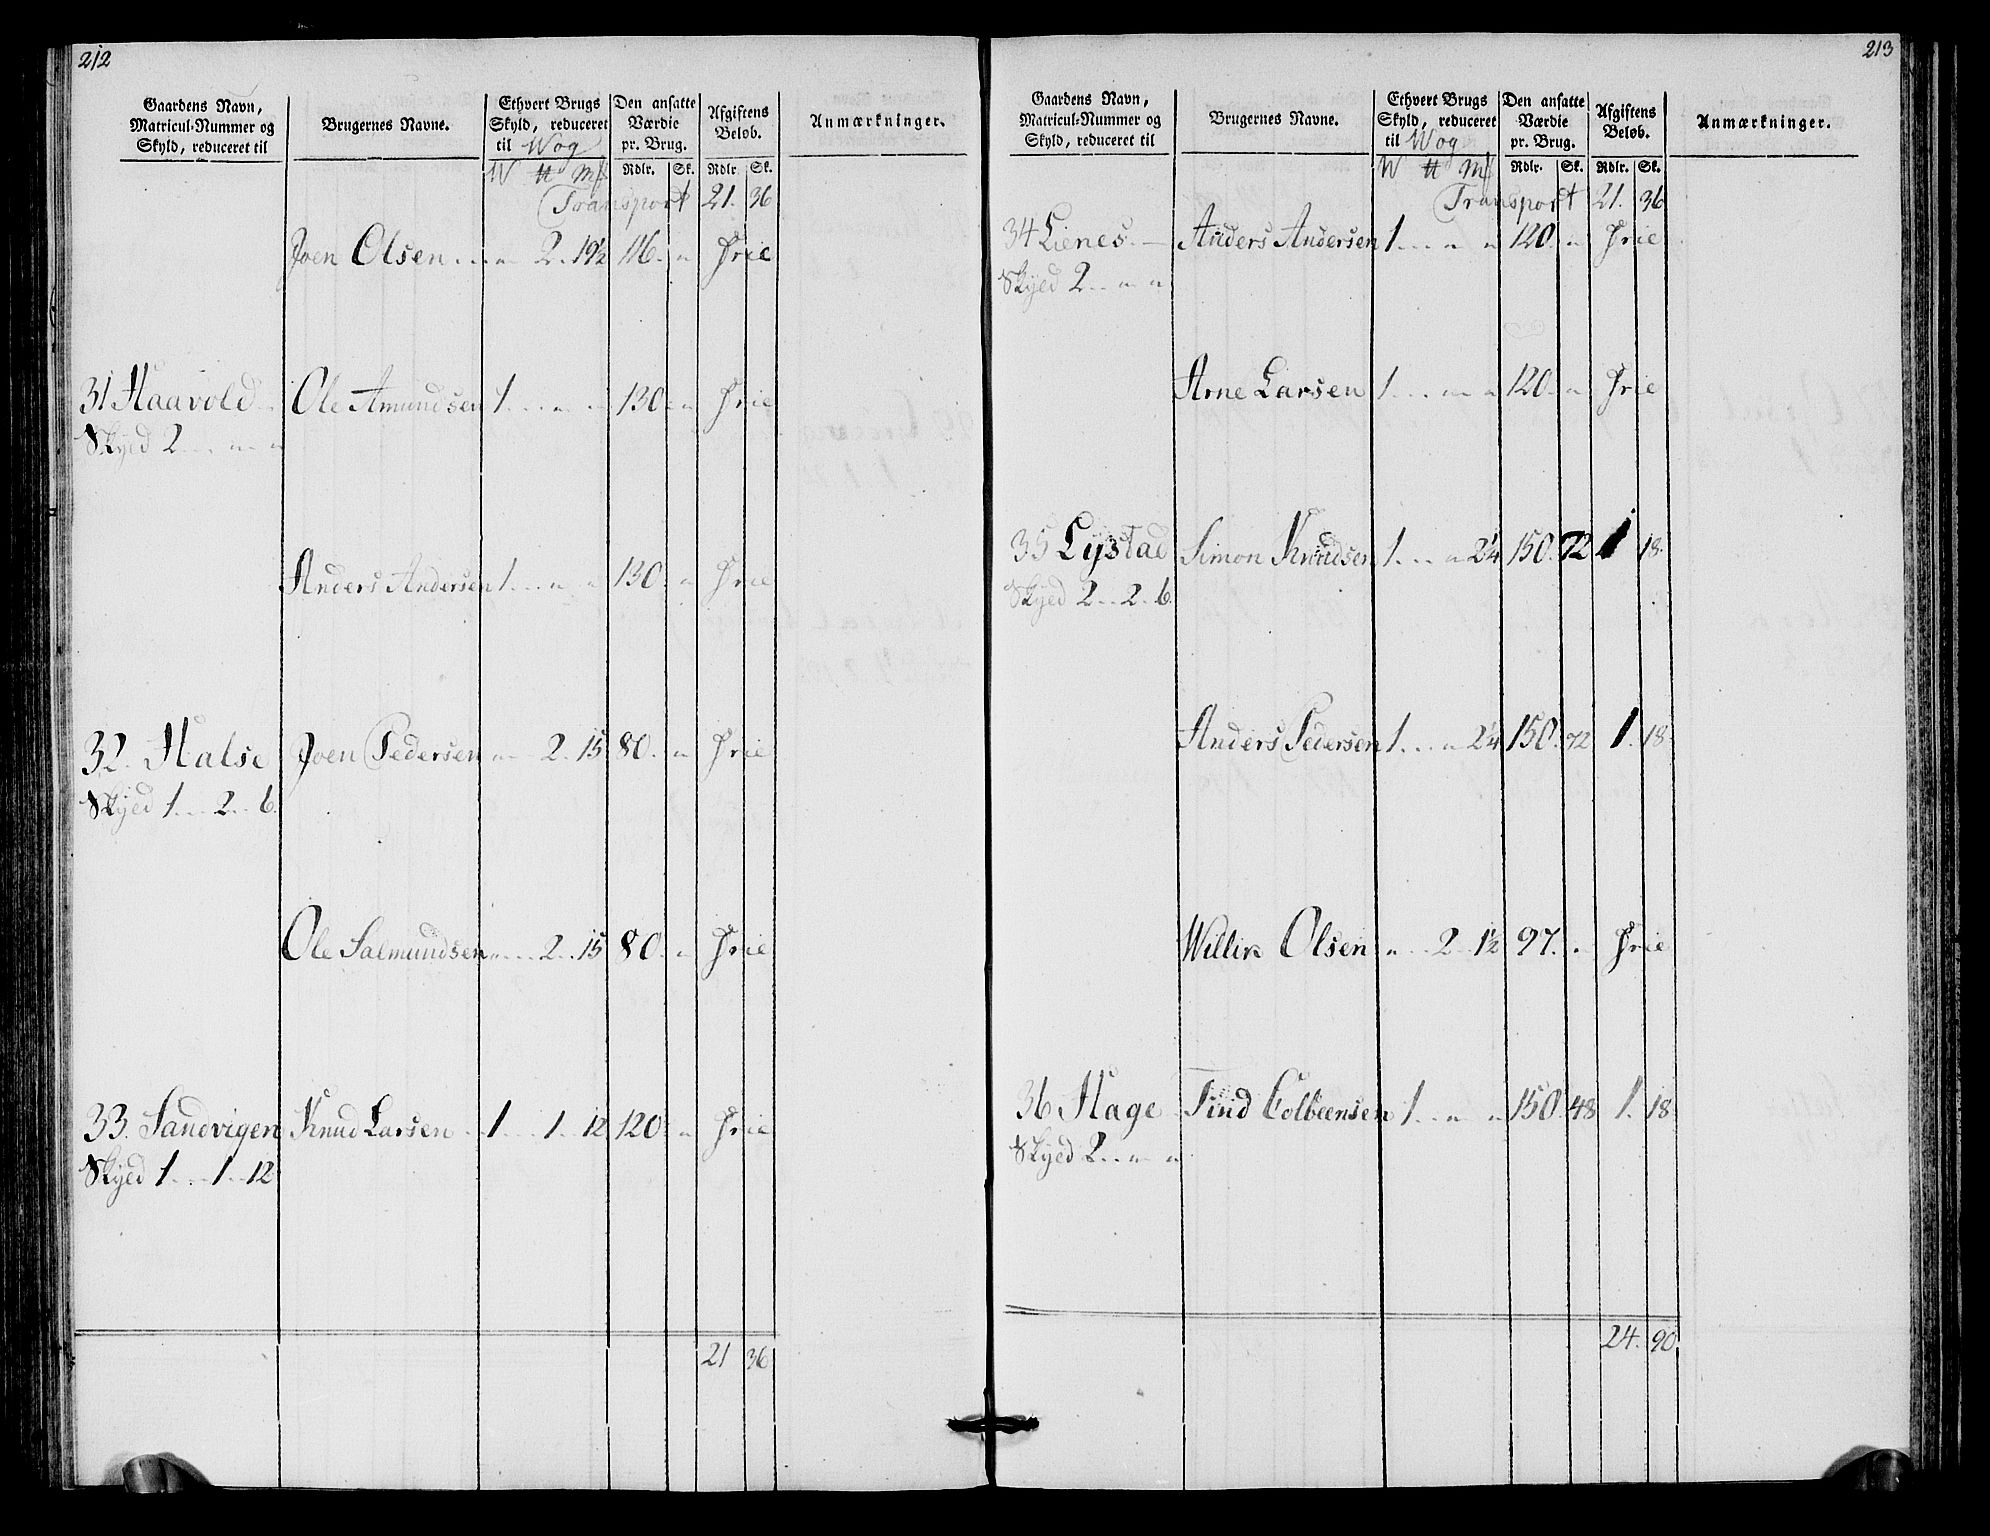 212
Gaardens Navn, Matricul-Nummer og Skyld, reduceret til
Brugernes Navne.
Ethvert Brugs Skyld, reduceret til Wog
Den ansatte Værdie pr. Brug.
Afgiftens Beløb.
Anmærkninger.
W ℔ Mk Rdlr. Sk. Rdlr. Sk.
Transport 21. 36
Joen Olsen . . . „ 2. 19½ 116. „ Frie
31 Haavold Ole Amundsen 1 . . . „ „ 130 „ Frie
Skyed 2 . . „ „
Anders Andersen 1 . . . „ „ 130. „ Frie
32. Halse Joen Pedersen „ 2. 15 80. „ Frie
Skyed 1 . . 2 . . 6.
Ole Salmundsen „ . . 2 . . 15 80. „ Frie
33. Sandvigen Knud Larsen 1 . . 1 . . 12 120 „ Frie
Skyed 1 . . . 1 . . 12
21 36
213
Gaardens Navn, Matricul-Nummer og Skyld, reduceret til
Brugernes Navne.
Ethvert Brugs Skyld, reduceret til Wog
Den ansatte Værdie pr. Brug.
Afgiftens Beløb.
Anmærkninger.
W ℔ Mk Rdlr. Sk. Rdlr. Sk.
Transport 21. 36
34 Lienes. Anders Andersen 1 . . . „ „ 120. „ Frie
Skyed 2 . . „ „
Arne Larsen 1 . . . „ „ 120. „ Frie
35 Lystad Simon Knudsen 1 . . . „ 2¼ 150. 72 1 18.
Skyed 2 . . 2. 6.
Anders Pedersen 1 . . . „ 2¼ 150. 72 1. 18
Olsen „ . . 2 1½ 97. „ Frie
36 Hage Find Colbeensen 1 . . „ „ 150. 48 1. 18
Skyed 2 . . „ „
24. 90